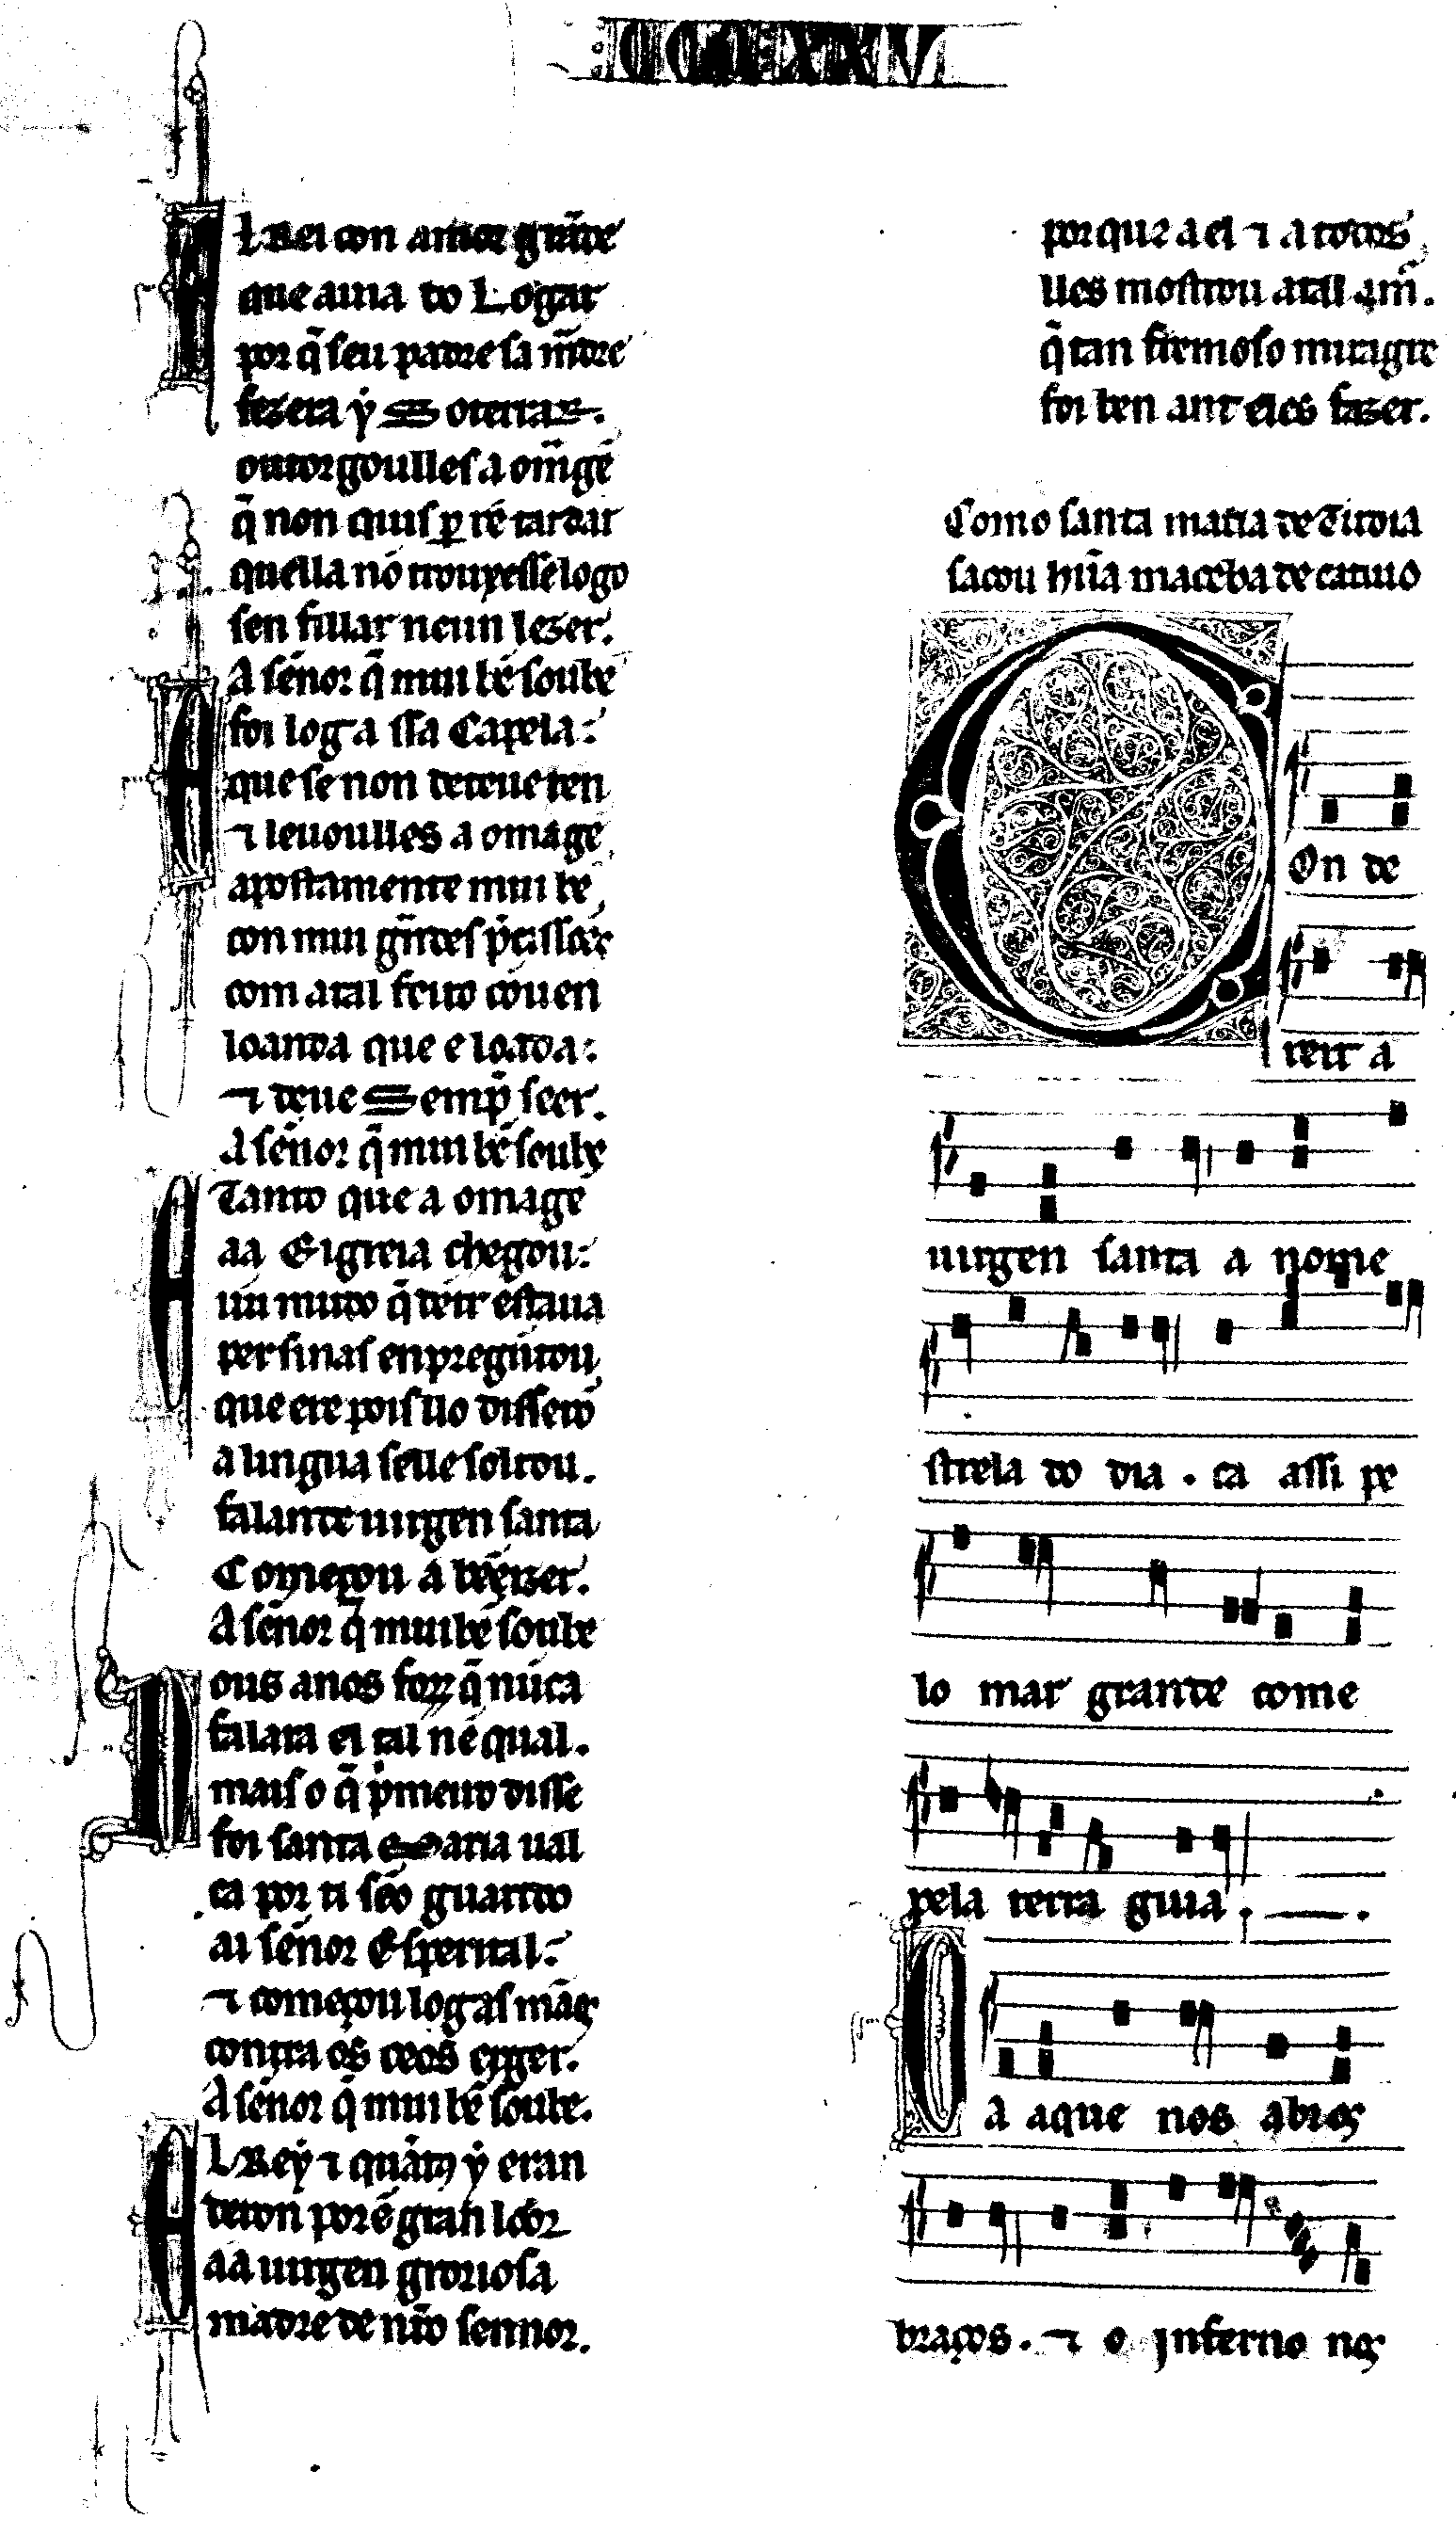 CCCXXV
El Rei con amor g̃nde
que auia do Logar
por q̃ seu padre sa m̃dre
fezera ẏ Soterrar.
outorgoulles a om̃gẽ
q̃ non quis ꝑ rẽ tardar
quella nõ trouxesse logo
sen fillar neun lezer.
A sẽnor q̃ mui bẽ soube
foi log a ssa Capela:
que se non deteue ren
⁊ leuoulles a omagẽ
apostamente mui bẽ,
con mui g̃ndes
com a tal feito cõuen
loanda que e loada:
⁊ deue Semp̃ seer.
A sẽnor q̃ mui bẽ soube
Tanto que a omagẽ
aa Eigreia chegou:
un mudo q̃ dentr estaua
per sinas en preguntou,
que ere pois llo disserõ
a lingua selle soltou.
falante uirgen santa
Começou a bẽeizer.
A sẽnor q̃ mui bẽ soube
Dous anos foz q̃ nũca
falara el tal nẽ qual.
mais o q̃ p̃meiro disse
foi santa Maria ual
ca por ti sẽo guarido
ai sẽnor Esperital:
⁊ começou log as mãos
contra os ceos erger.
A sẽnor q̃ mui bẽ soube.
El Reẏ ⁊ quãtos ẏ eran
deron porẽ gran loor
aa uirgen groriosa
madre de nr̃o sennor.
porque a el ⁊ a todos
lles mostrou atal am̃.
q̃ tan fremoso miragre
foi ben ant eles fazer.
Como santa maria de Tudia
sacou hũa mãceba de catiuo
Con de
reit a
uirgen santa a nome
strela do dia . ca assi pe
lo mar grande come
pela terra guia .
Ca aque nos abrios
braços . ⁊ o jnferno nos